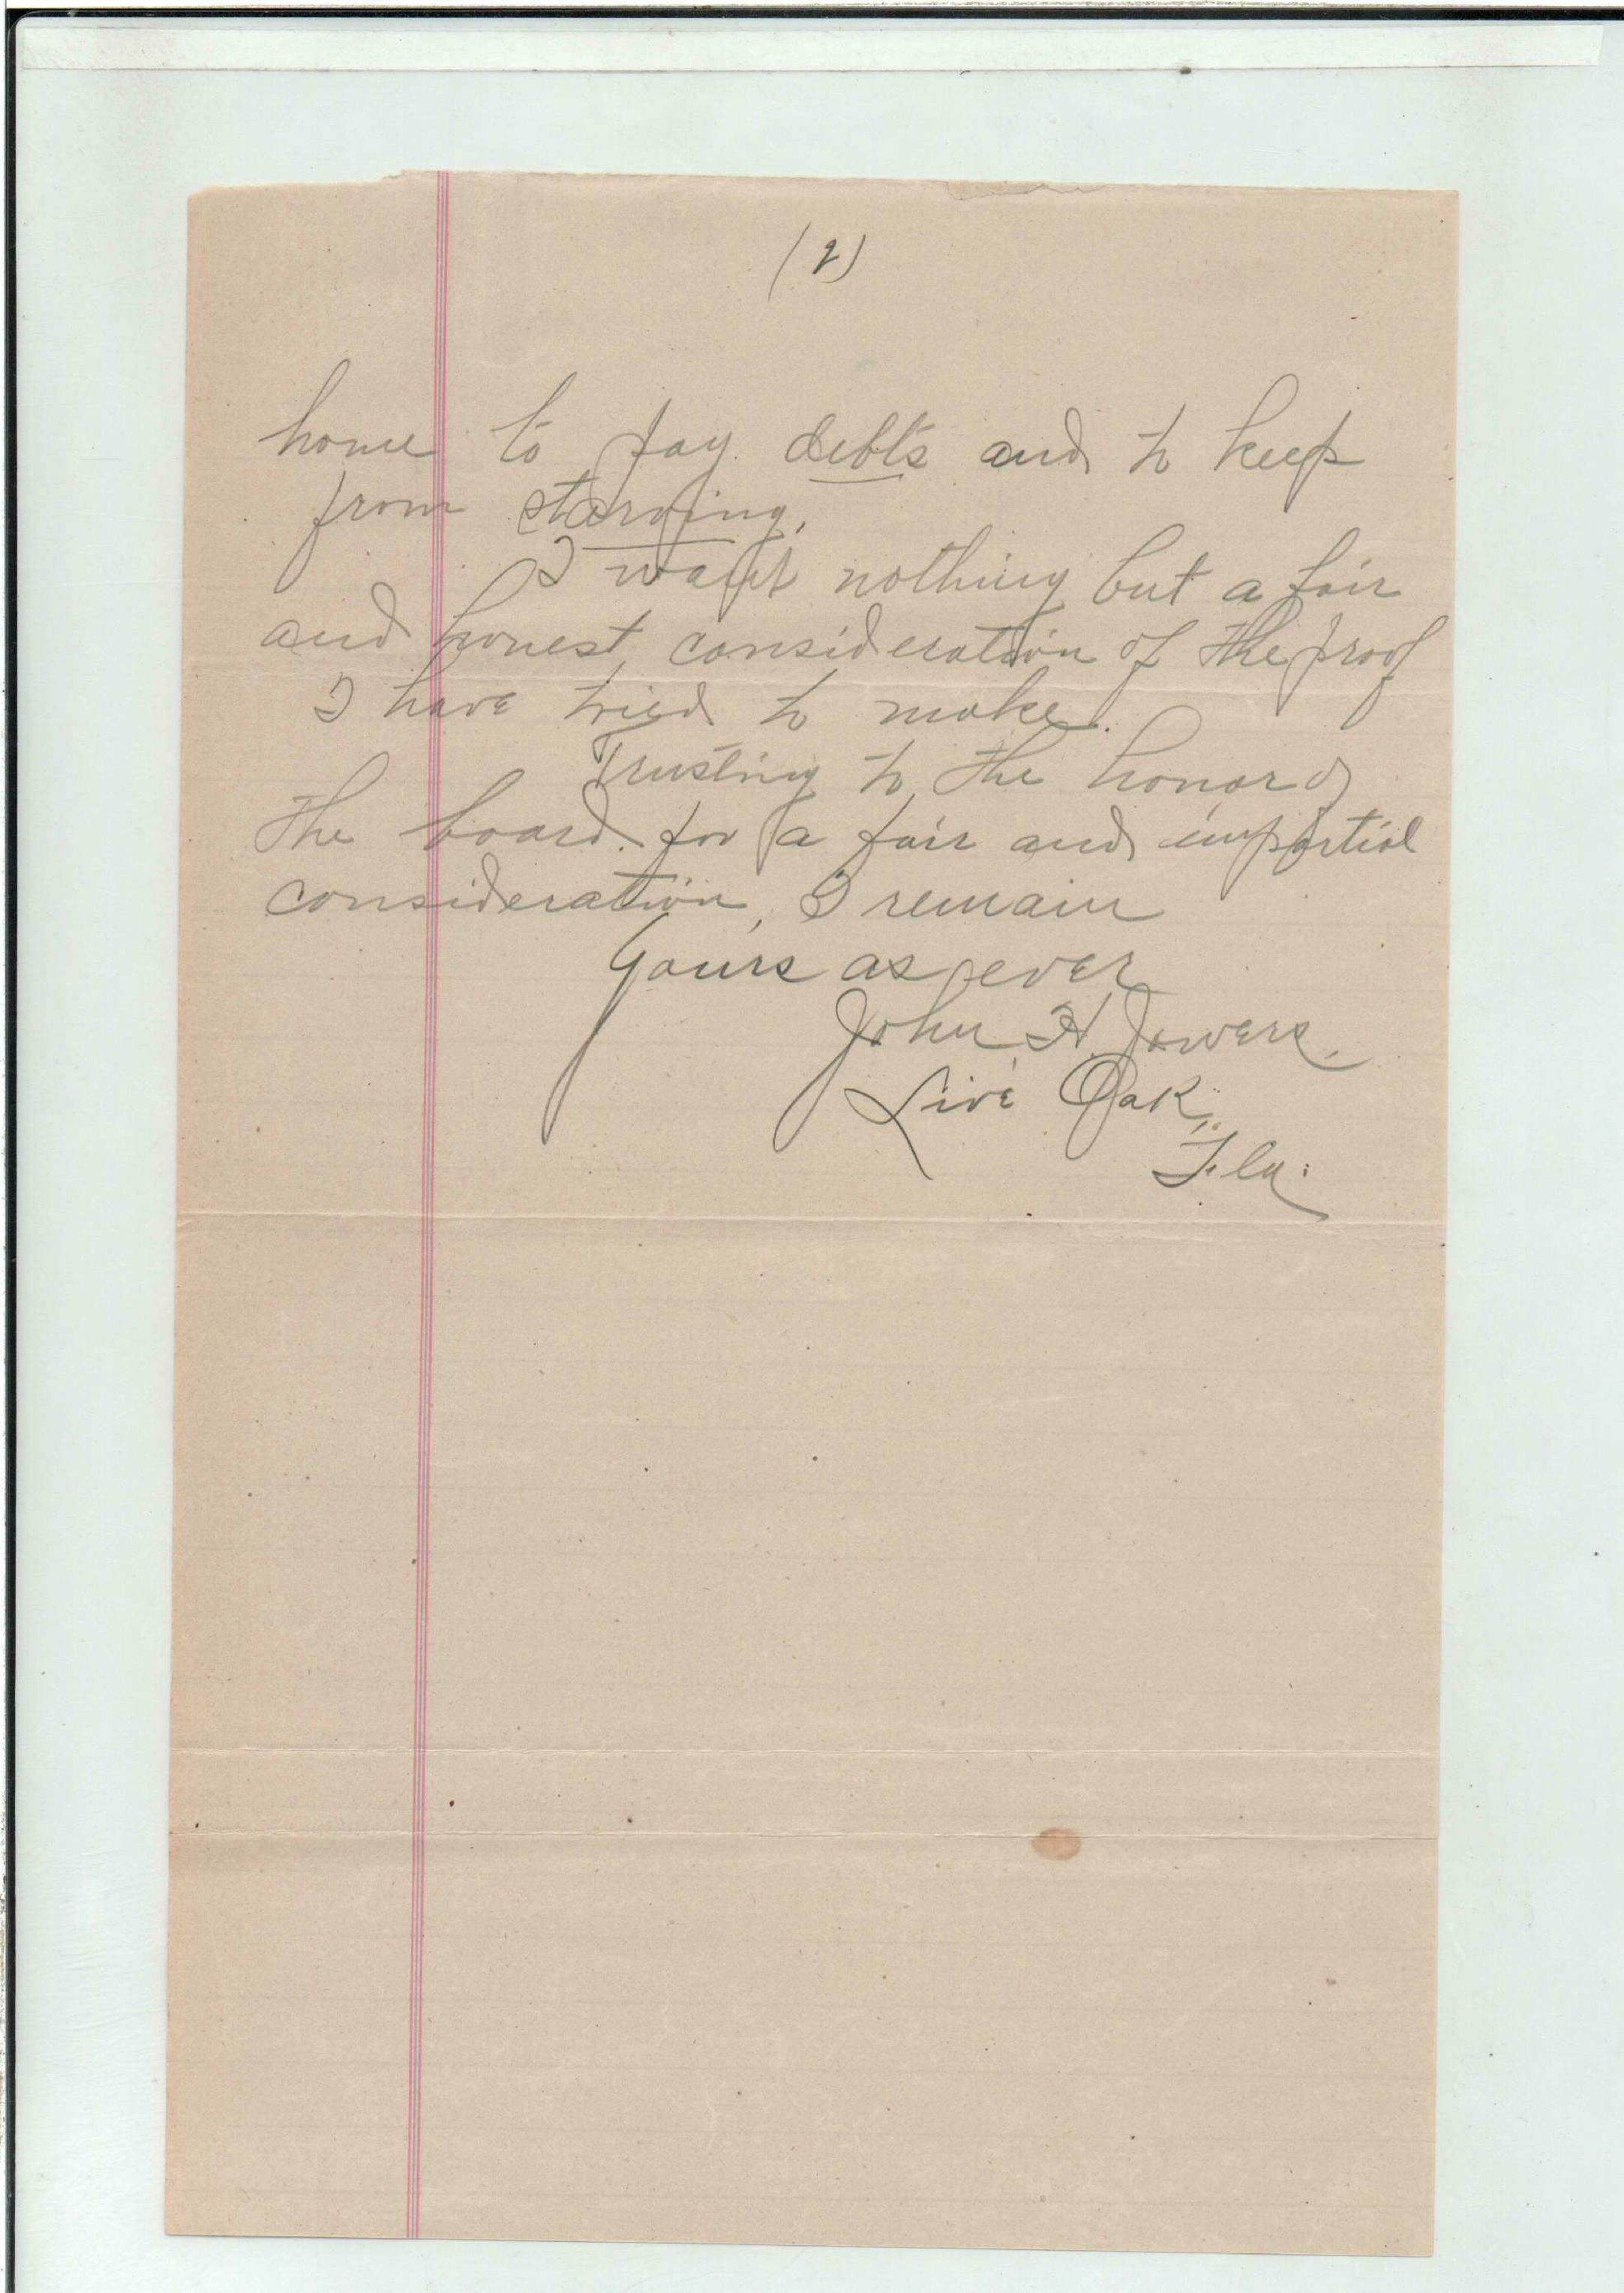 (2)
home to pay debts and to keep
from starving.
I want nothing but a fair
and honest consideration of the proof
I have tried to make.
Trusting to the honor of
the board for a fair and impartial
consideration, I remain
Yours as ever
John H Jowers.
Live Oak,
Fla.